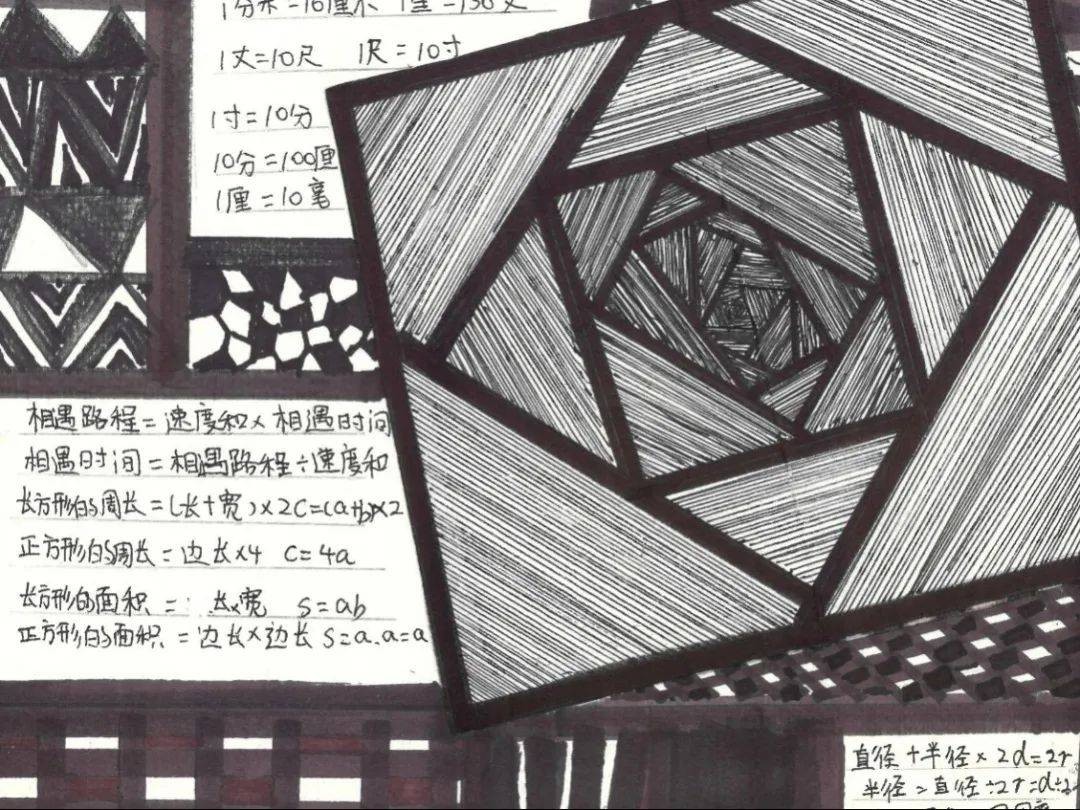 1丈=10尺 1尺=10寸
1寸=10分
10分=100厘
1厘=10毫
相遇路程=速度和×相遇时间
相遇时间=相遇路程÷速度和
长方形的周长=(长+宽)×2C=(a+b)×2
正方形的周长=边长×4 C=4a
长方形的面积= 长×宽 S=ab
正方形的面积=边长×边长 S=a.a=a
直径+半径×2d=2r
半径=直径÷2r=d÷2